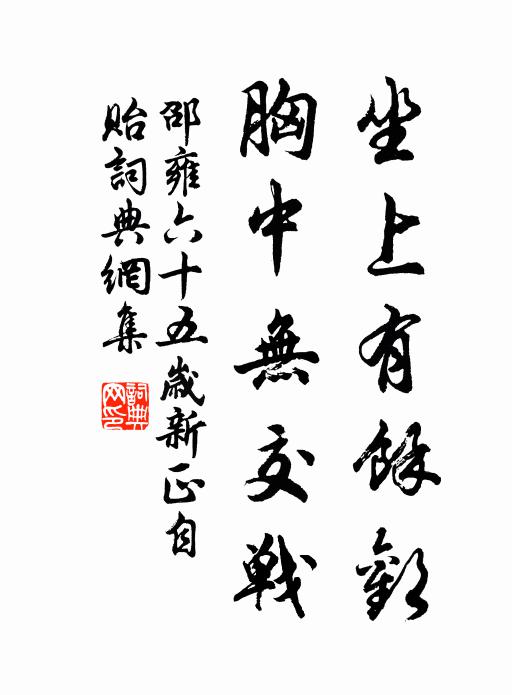 坐上有餘歡
胸中無交戰
邵雍六十五歲新正自
貽詞典網集
詞典
网印